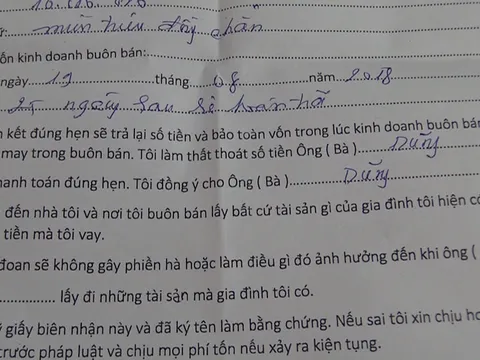 mười triệu đồng chẵn
ốn kinh doanh buôn bán:
ngày....19....tháng....08....năm...2018
25 ngày sau sẽ hoàn trả
n kết đúng hẹn sẽ trả lại số tiền và bảo toàn vốn trong lúc kinh doanh buôn bán
may trong buôn bán. Tôi làm thất thoát số tiền Ông ( Bà )....Dũng
hanh toán đúng hẹn. Tôi đồng ý cho Ông ( Bà )....Dũng
đến nhà tôi và nơi tôi buôn bán lấy bất cứ tài sản gì của gia đình tôi hiện có
tiền mà tôi vay.
đoan sẽ không gây phiền hà hoặc làm điều gì đó ảnh hưởng đến khi ông (
.................. lấy đi những tài sản mà gia đình tôi có.
giấy biên nhận này và đã ký tên làm bằng chứng. Nếu sai tôi xin chịu ho
trước pháp luật và chịu mọi phí tốn nếu xảy ra kiện tụng.